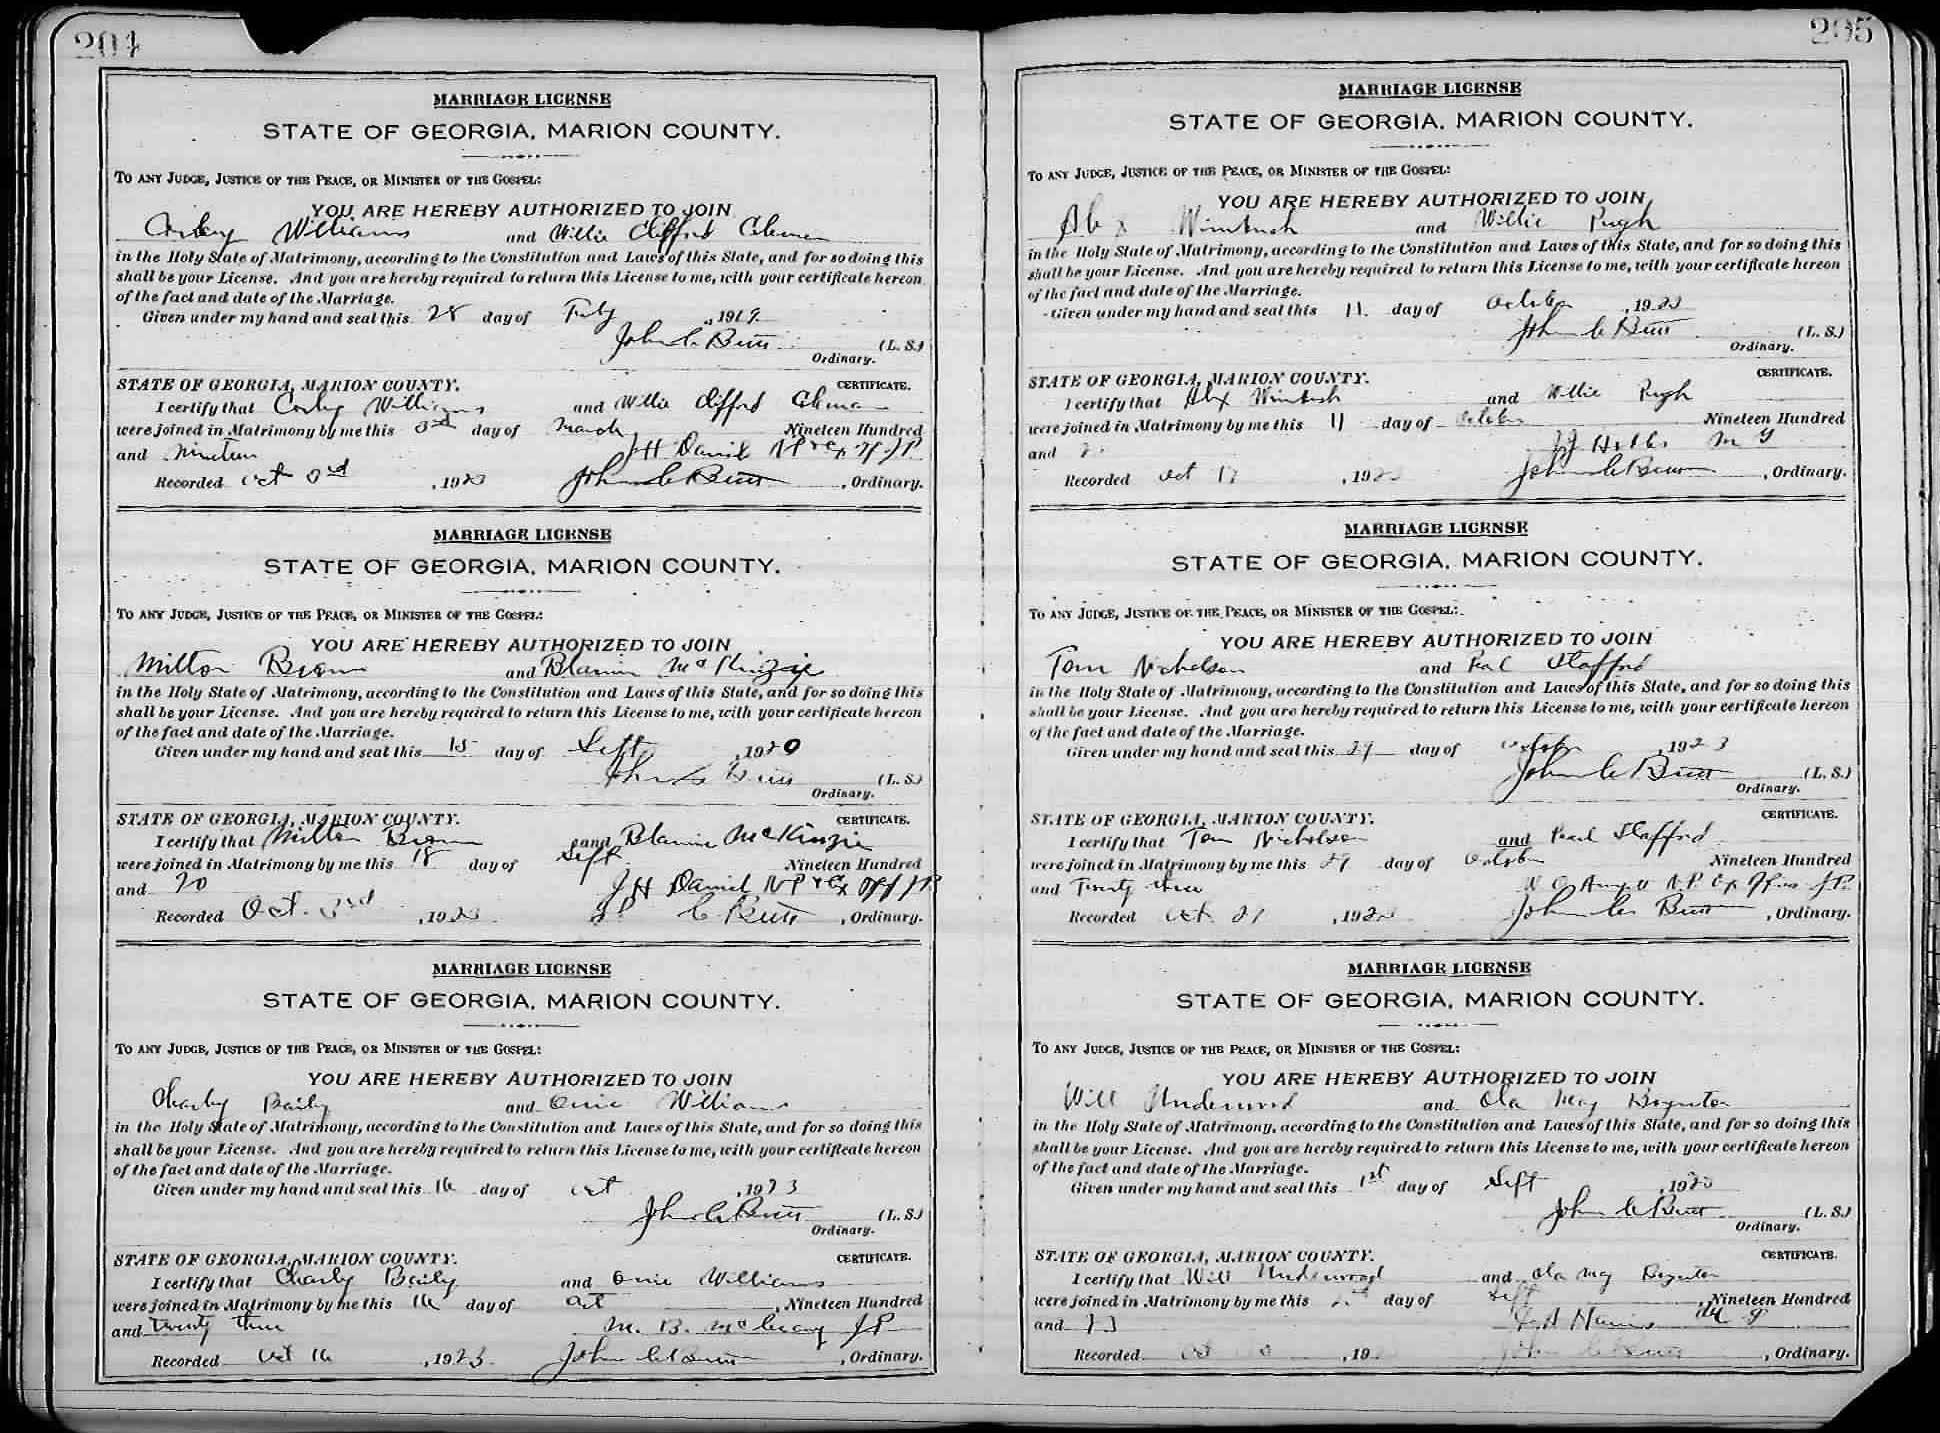 204
MARRIAGE LICENSE
STATE OF GEORGIA, MARION COUNTY.
TO ANY JUDGE, JUSTICE OF THE PEACE, OR MINISTER OF THE GOSPEL:
YOU ARE HEREBY AUTHORIZED TO JOIN
Williams and Willie Clifford Coleman
in the Holy State of Matrimony, according to the Constitution and Laws of this State, and for so doing this
shall be your License. And you are hereby required to return this License to me, with your certificate hereon
of the fact and date of the Marriage.
Given under my hand and seal this 28 day of Feby , 1919.
John C Butt (L. S.)
Ordinary.
STATE OF GEORGIA, MARION COUNTY. CERTIFICATE.
I certify that Williams and Willie Clifford Coleman
were joined in Matrimony by me this 3rd day of March Nineteen Hundred
and Nineteen J H Daniel N P & Ex off J P
Recorded Oct 3rd , 1923 John C Butt , Ordinary.
MARRIAGE LICENSE
STATE OF GEORGIA, MARION COUNTY.
TO ANY JUDGE, JUSTICE OF THE PEACE, OR MINISTER OF THE GOSPEL:
YOU ARE HEREBY AUTHORIZED TO JOIN
Milton Brown and McKinzie
in the Holy State of Matrimony, according to the Constitution and Laws of this State, and for so doing this
shall be your License. And you are hereby required to return this License to me, with your certificate hereon
of the fact and date of the Marriage.
Given under my hand and seal this 15 day of Sept , 1920
John C Butt (L. S.)
Ordinary.
STATE OF GEORGIA, MARION COUNTY. CERTIFICATE.
I certify that Milton Brown and McKinzie
were joined in Matrimony by me this 18 day of Sept Nineteen Hundred
and 20 J H Daniel N P & Ex off J P
Recorded Oct. 3rd , 1923 C Butt , Ordinary.
MARRIAGE LICENSE
STATE OF GEORGIA, MARION COUNTY.
TO ANY JUDGE, JUSTICE OF THE PEACE, OR MINISTER OF THE GOSPEL:
YOU ARE HEREBY AUTHORIZED TO JOIN
Charley Baily and Onie Williams
in the Holy State of Matrimony, according to the Constitution and Laws of this State, and for so doing this
shall be your License. And you are hereby required to return this License to me, with your certificate hereon
of the fact and date of the Marriage.
Given under my hand and seal this 16 day of Oct , 1923
John C Butt (L. S.)
Ordinary.
STATE OF GEORGIA, MARION COUNTY. CERTIFICATE.
I certify that Charly Baily and Onie Williams
were joined in Matrimony by me this 16 day of Oct , Nineteen Hundred
and twenty three M. B. McCrary J P
Recorded Oct 16 , 1923. John C Butt , Ordinary.
205
MARRIAGE LICENSE
STATE OF GEORGIA, MARION COUNTY.
TO ANY JUDGE, JUSTICE OF THE PEACE, OR MINISTER OF THE GOSPEL:
YOU ARE HEREBY AUTHORIZED TO JOIN
Alex and Willie Pugh
in the Holy State of Matrimony, according to the Constitution and Laws of this State, and for so doing this
shall be your License. And you are hereby required to return this License to me, with your certificate hereon
of the fact and date of the Marriage.
Given under my hand and seal this 11. day of October , 1923
John C Butt (L. S.)
Ordinary.
STATE OF GEORGIA, MARION COUNTY. CERTIFICATE.
I certify that Alex and Willie Pugh
were joined in Matrimony by me this 11 day of October Nineteen Hundred
and M G
Recorded Oct 17 , 1923 John C Butt , Ordinary.
MARRIAGE LICENSE
STATE OF GEORGIA, MARION COUNTY.
TO ANY JUDGE, JUSTICE OF THE PEACE, OR MINISTER OF THE GOSPEL:
YOU ARE HEREBY AUTHORIZED TO JOIN
Tom Nicholson and Pearl Stafford
in the Holy State of Matrimony, according to the Constitution and Laws of this State, and for so doing this
shall be your License. And you are hereby required to return this License to me, with your certificate hereon
of the fact and date of the Marriage.
Given under my hand and seal this day of October , 1923
John C Butt (L. S.)
Ordinary.
STATE OF GEORGIA, MARION COUNTY. CERTIFICATE.
I certify that Tom Nicholson and Pearl Stafford
were joined in Matrimony by me this day of October Nineteen Hundred
and Twenty three N.P. Ex J.P.
Recorded Oct. , 1923 John C Butt , Ordinary.
MARRIAGE LICENSE
STATE OF GEORGIA, MARION COUNTY.
TO ANY JUDGE, JUSTICE OF THE PEACE, OR MINISTER OF THE GOSPEL:
YOU ARE HEREBY AUTHORIZED TO JOIN
Will Underwood and Ola May Boynton
in the Holy State of Matrimony, according to the Constitution and Laws of this State, and for so doing this
shall be your License. And you are hereby required to return this License to me, with your certificate hereon
of the fact and date of the Marriage.
Given under my hand and seal this 1st day of Sept , 1923
John C Butt (L. S.)
Ordinary.
STATE OF GEORGIA, MARION COUNTY. CERTIFICATE.
I certify that Will Underwood and Ola May Boynton
were joined in Matrimony by me this day of Sept , Nineteen Hundred
and 23 Harris M G
Recorded Oct , 19 John C Butt , Ordinary.